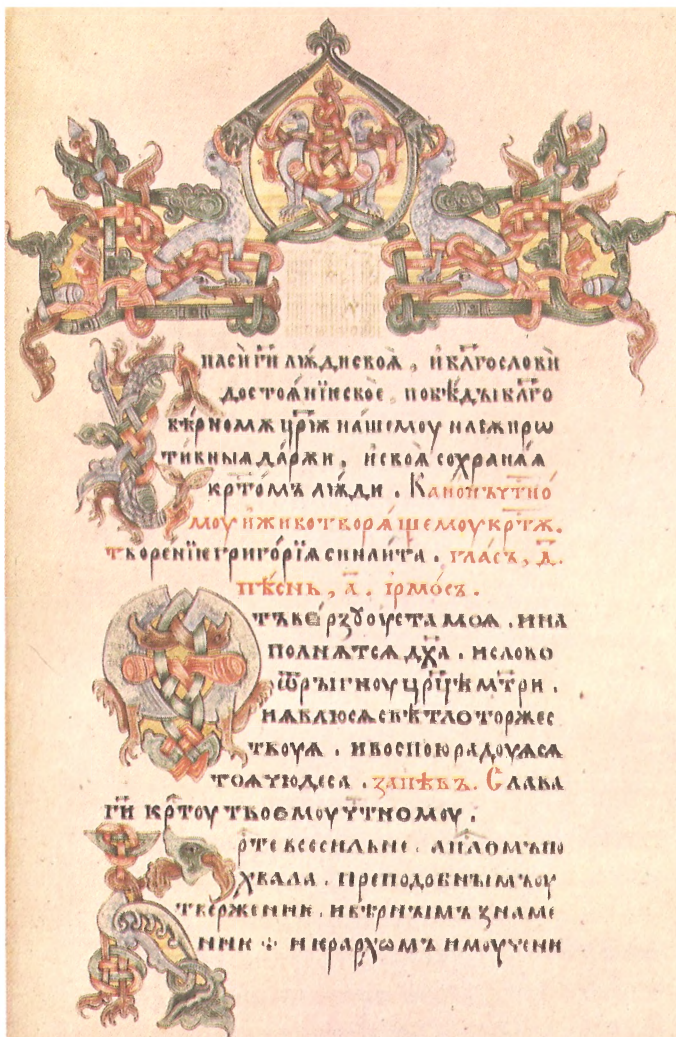 пасѝ гн҃и лю́ди своѧ̀, и҆ бл҃гослови
достоѧ́нїе своѐ, побѣ́ды бл҃го
вѣ́рномꙋ цр҃ю на́шемоу на сѫпро
ти́вныѧ да́ржи, и҆ своѧ̀ сохранѧ́ѧ
крⷭ҇томъ лю́ди. Кано́нъ чтⷭ҇но
моу и҆ животворѧ́щемоу крⷭ҇тꙋ.
творе́нїе григо́рїѧ синаи́та. гла́съ, д҃.
пѣ́снь, а҃. і҆рмо́съ.
тъве́рзꙋ оуста̀ моѧ̀. и на
полнѧ́тсѧ дх҃а. и слово
ѿры́гноу цр҃це м҃три.
и ꙗвлюсѧ свѣ́тло торжес
твоуѧ. и воспою радоуѧсѧ
тоѧ чюдеса. запѣ́въ. Слава
гн҃и крⷭ҇тоу твоемоу чтⷭ҇номоу.
рⷭ҇те всесильне. апⷭ҇ломъ по
хвала. преподобнымъ оу
твержение. и вѣ́рнымъ знаме
ние и иерархомъ и моучени